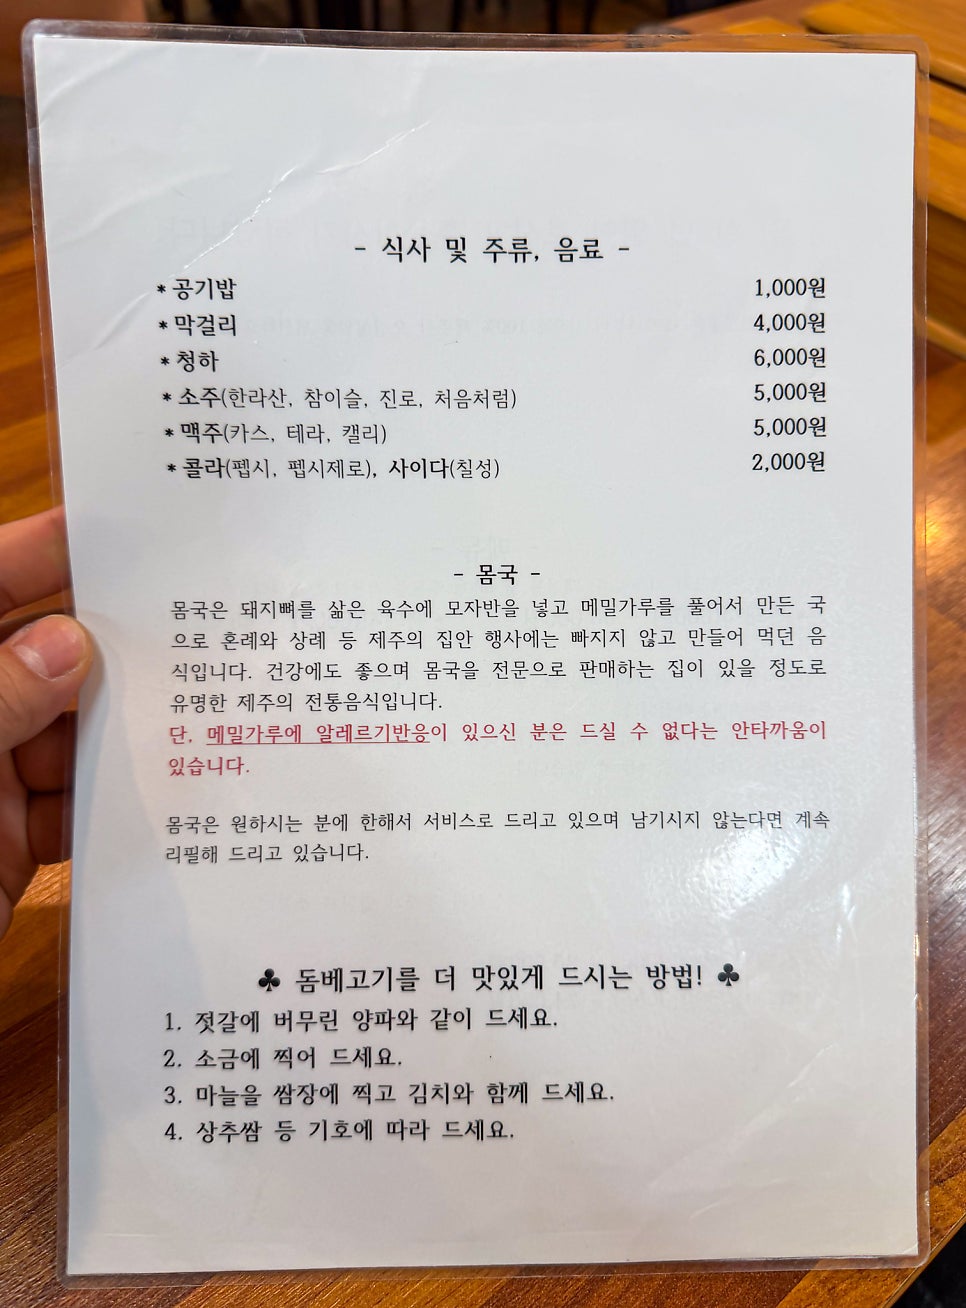 - 식사 및 주류, 음료 -
* 공기밥 1,000원
* 막걸리 4,000원
* 청하 6,000원
* 소주(한라산, 참이슬, 진로, 처음처럼) 5,000원
* 맥주(카스, 테라, 캘리) 5,000원
* 콜라(펩시, 펩시제로), 사이다(칠성) 2,000원
- 몸국 -
몸국은 돼지뼈를 삶은 육수에 모자반을 넣고 메밀가루를 풀어서 만든 국
으로 혼례와 상례 등 제주의 집안 행사에는 빠지지 않고 만들어 먹던 음
식입니다. 건강에도 좋으며 몸국을 전문으로 판매하는 집이 있을 정도로
유명한 제주의 전통음식입니다.
단, 메밀가루에 알레르기반응이 있으신 분은 드실 수 없다는 안타까움이
있습니다.
몸국은 원하시는 분에 한해서 서비스로 드리고 있으며 남기시지 않는다면 계속
리필해 드리고 있습니다.
♣ 돔베고기를 더 맛있게 드시는 방법! ♣
1. 젓갈에 버무린 양파와 같이 드세요.
2. 소금에 찍어 드세요.
3. 마늘을 쌈장에 찍고 김치와 함께 드세요.
4. 상추쌈 등 기호에 따라 드세요.